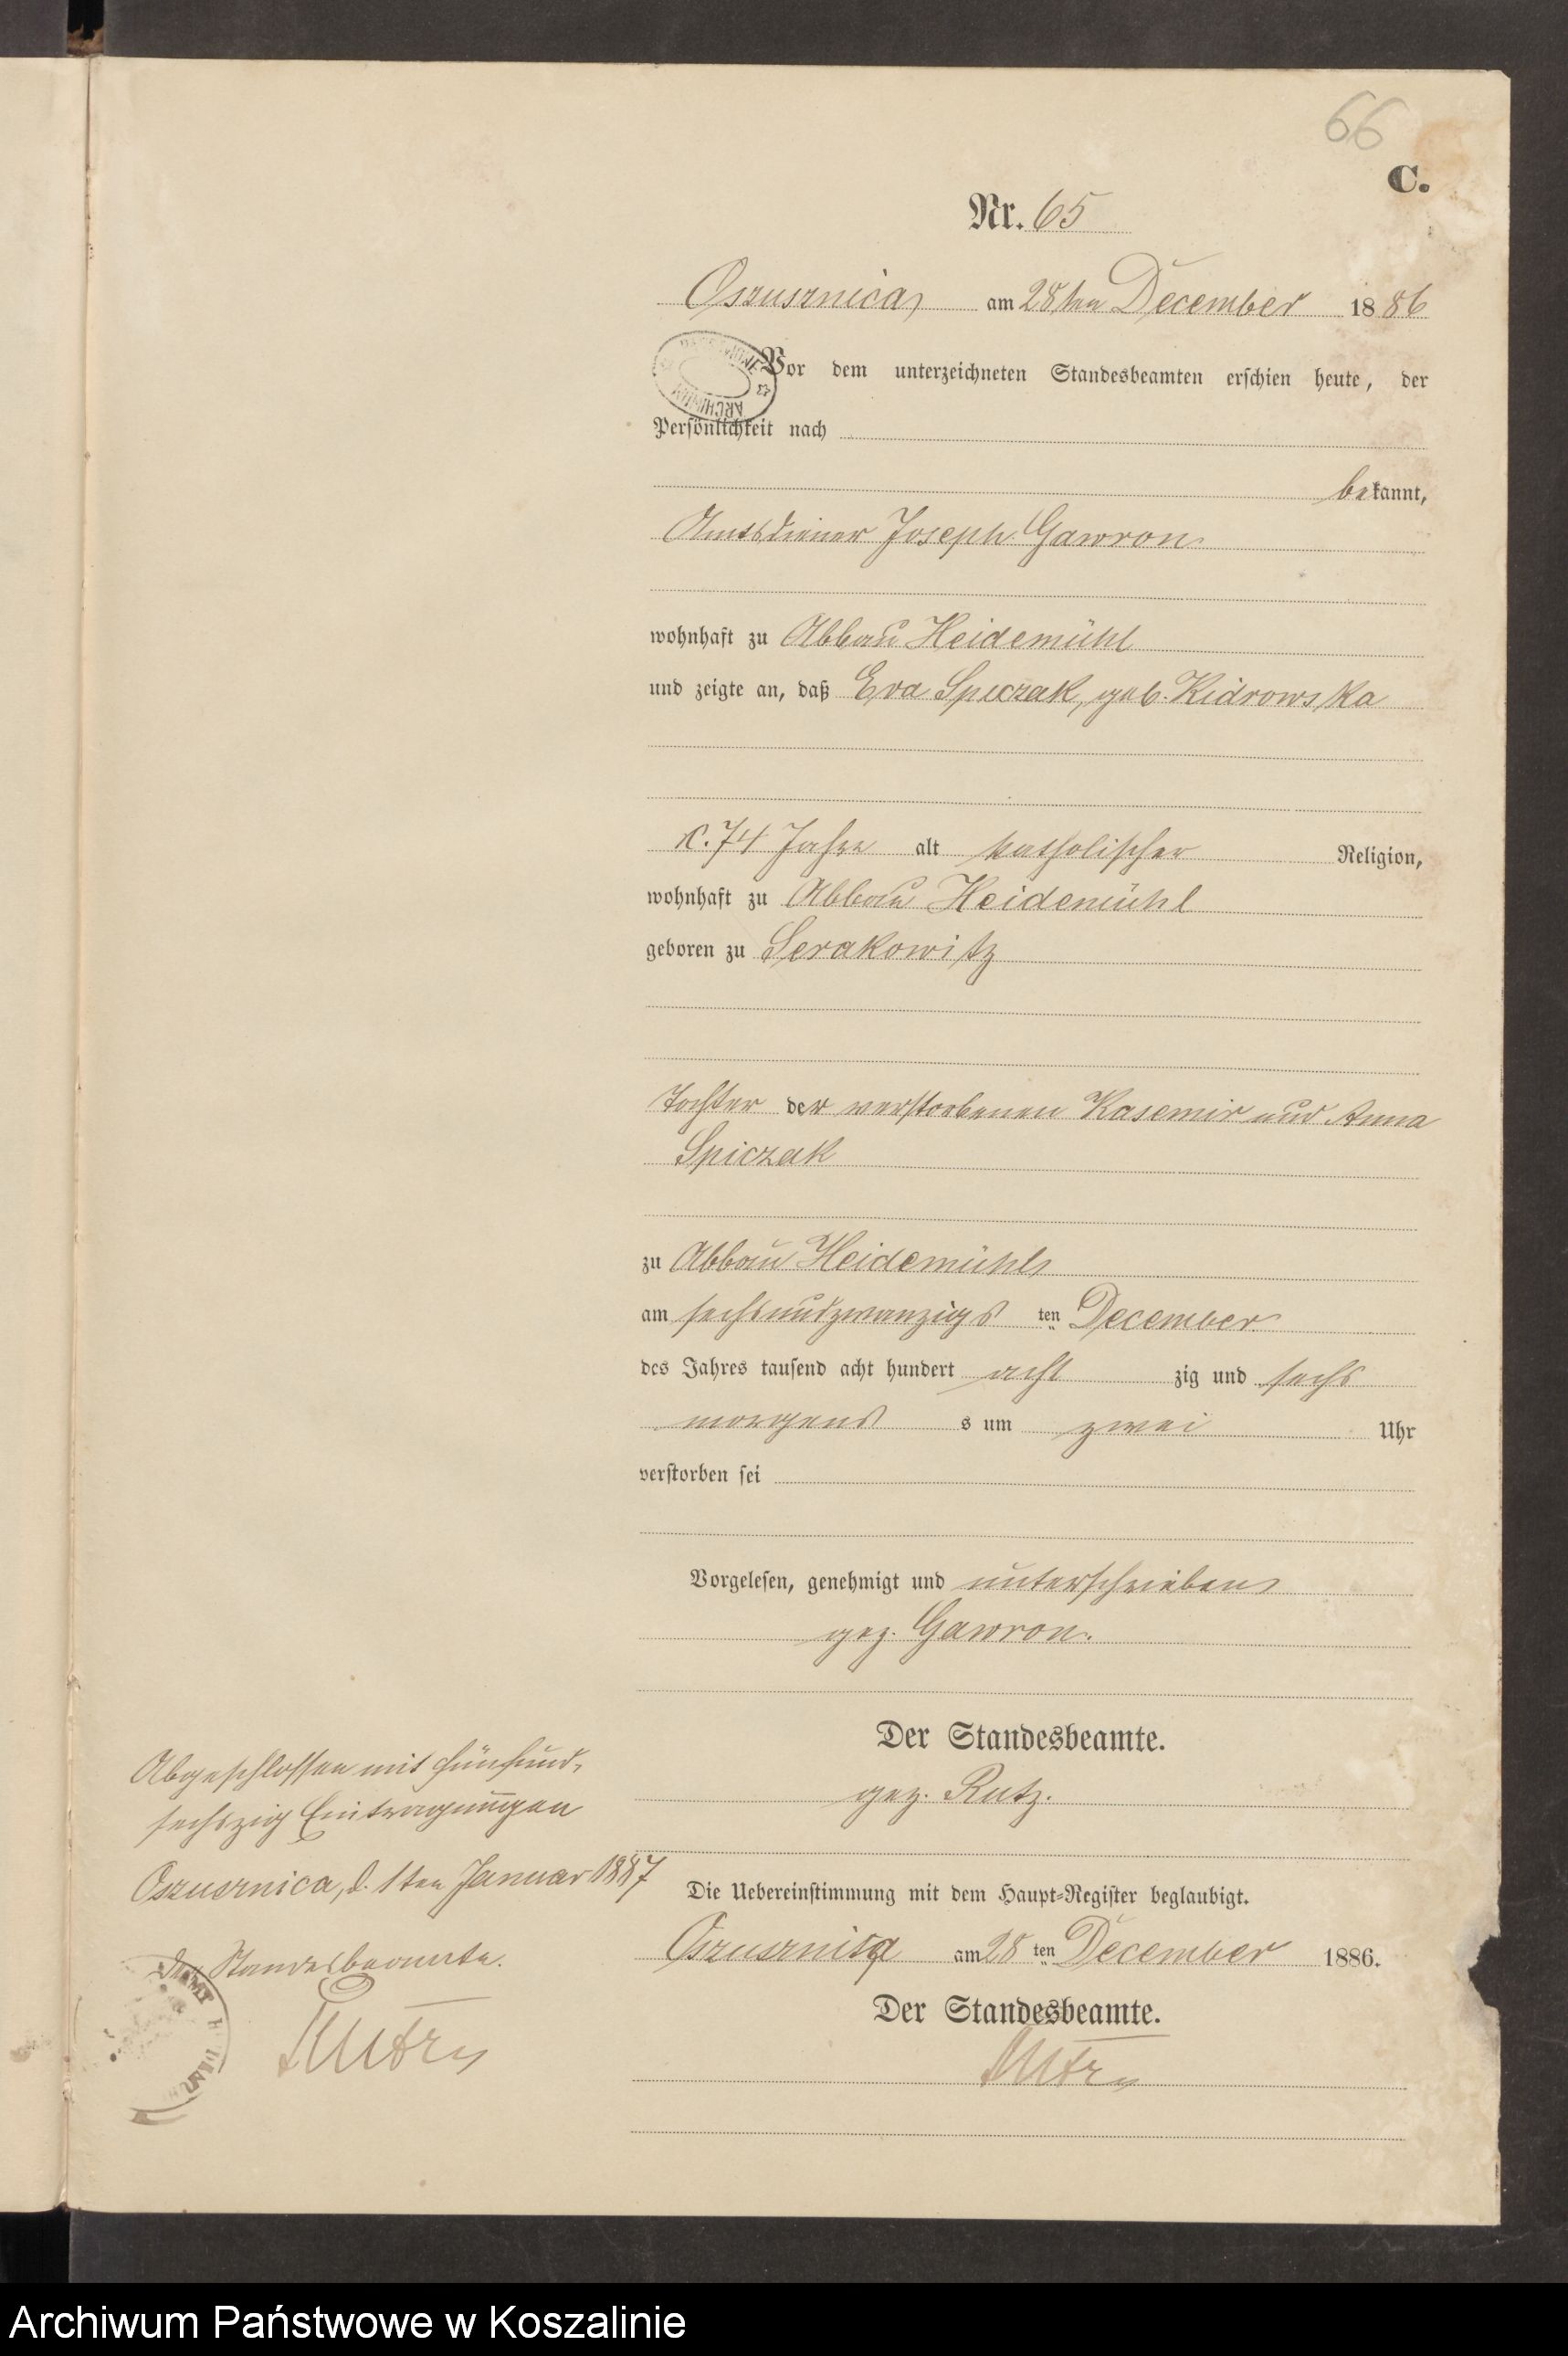 66
C.
Nr. 65
Oszusznica am 28ten December 1886
Vor dem unterzeichneten Standesbeamten erschien heute, der
Persönlichkeit nach
bekannt,
Amtsdiener Joseph Gawron
wohnhaft zu Abbau Heidemühl
und zeigte an, daß Eva Spiczak, geb. Kidrowska
c. 74 Jahre alt katholischer Religion,
wohnhaft zu Abbau Heidemühl
geboren zu Serakowitz
Tochter der verstorbenen Kasemir und Anna
Spiczak
zu Abbau Heidemühl
am sechsundzwanzigs ten December
des Jahres tausend acht hundert acht zig und sechs
morgens s um zwei Uhr
verstorben sei
Vorgelesen, genehmigt und unterschrieben
gez. Gawron.
Der Standesbeamte.
gez. Rutz.
Abgeschlossen mit fünfund-
sechszig Eintragungen
Oszusznica, d. 1ten Januar 1887
Der Standesbeamte.
Rutz
Die Uebereinstimmung mit dem Haupt-Register beglaubigt.
Oszusznica am 28 ten December 1886.
Der Standesbeamte.
Rutz
Archiwum Państwowe w Koszalinie